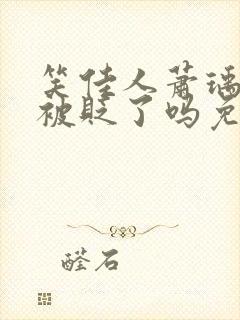 笑佳人萧瑀
被贬了吗免
醛石